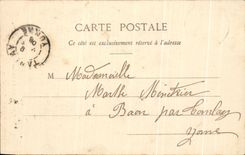 CARTE POSTALE
Ce côté est exclusivement réservé à l'adresse
M Mademoiselle
Marthe Ménétrier
à Baon par Tanlay
Yonne